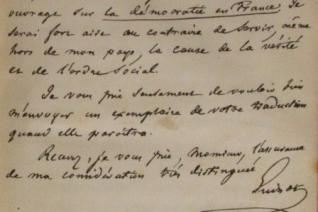 ouvrage sur la démocratie en France. Je
serai fort aise au contraire de servir, même
hors de mon pays, la cause de la vérité
et de l'ordre social.
Je vous prie seulement de vouloir bien
m'envoyer un exemplaire de votre traduction
quand elle paroîtra.
Recevez, je vous prie, Monsieur, l'assurance
de ma considération très distinguée
Guizot